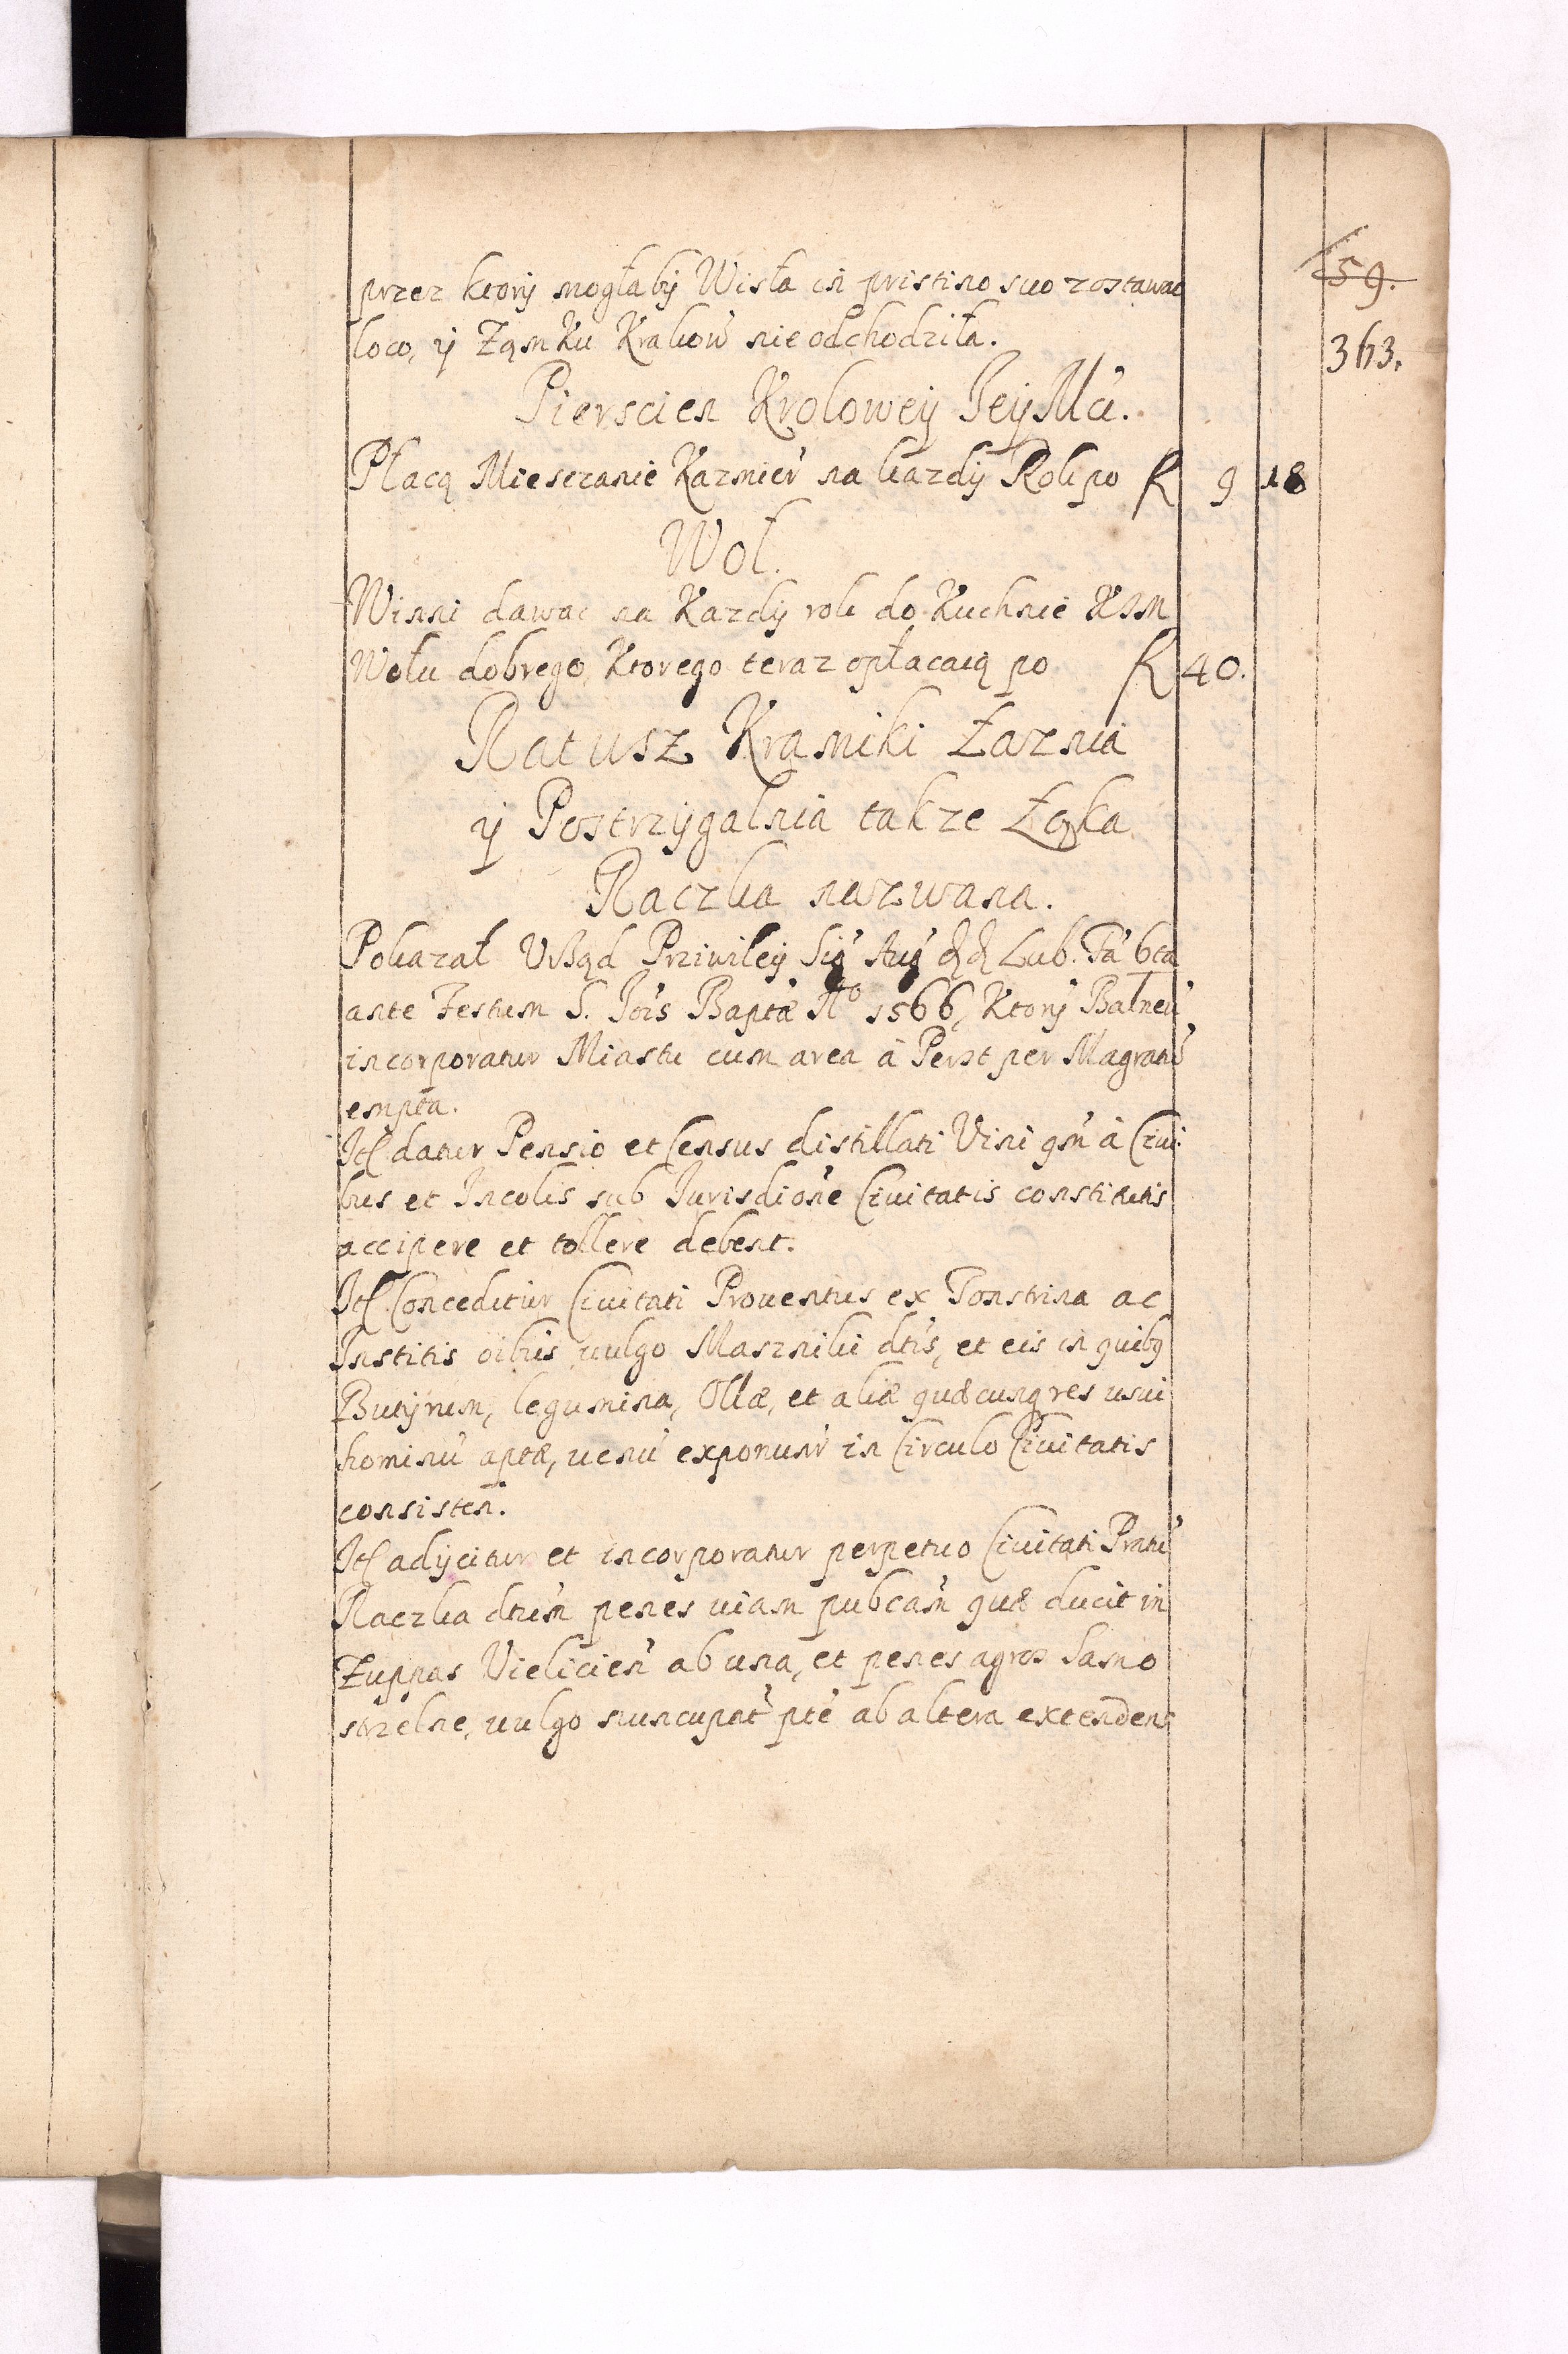 59.
363.
przez ktory mogłaby Wisła in pristino suo zostawac
loco, y Ząmku Krakow̃ nie odchodziła.
Pierscien Krolowey Jey Mci.
Płacą Miesczanie Kazmieŕ na kazdy Rok po R 9 18
Woł.
Winni dawac na Kazdy rok do Kuchnie KJM
Wołu dobrego, Ktorego teraz opłacaią po R 40.
Ratusz Kramiki Łaznia
y Postrzygalnia takze Łąka
Raczka nazwana.
Pokazał Urząd Priwiley Sig̃ Aug̃ Lub. Fã 6ta
ante Festum S. Jois Baptæ Aº 1566, Ktory Balneũ
incorporatur Miastu cum area à Perst per Magratũ
empta.
Jt. datur Pensio et Census distillati Vini qm̃ à Civi
bus et Incolis sub Jurisdione Civitatis constitutis
accipere et tollere debent.
Jt. Conceditur Civitati Proventus ex Tonstrina ac
Institis oibus vulgo Maszniki dtis, et eis in quibꝯ
Butyrum, legumina, Ollæ, et aliæ quæcunq res usui
hominũ aptæ, venũ exponunr̃ in Circulo Civitatis
consisteñ.
Jt. adijcitur et incorporatur perpetuo Civitati Pratũ
Raczka dtum̃ penes viam pubcam̃ quæ ducit in
Zuppas Vielicień ab una, et penes agros Samo
strzelne, vulgo nuncupat̃ pte ab altera extendens